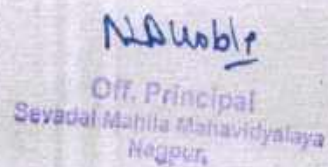 Off. Principal
Sevadal Mahila Mahavidyalaya
Nagpur.